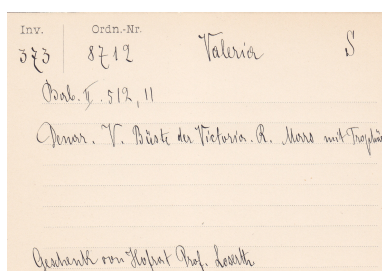 Inv. Ordn.-Nr.
373 8712 Valeria S
Bab. II. 512, 11
Denar. V. Büste der Victoria. R. Mars mit
Geschenk von Hofrat Prof. Loserth